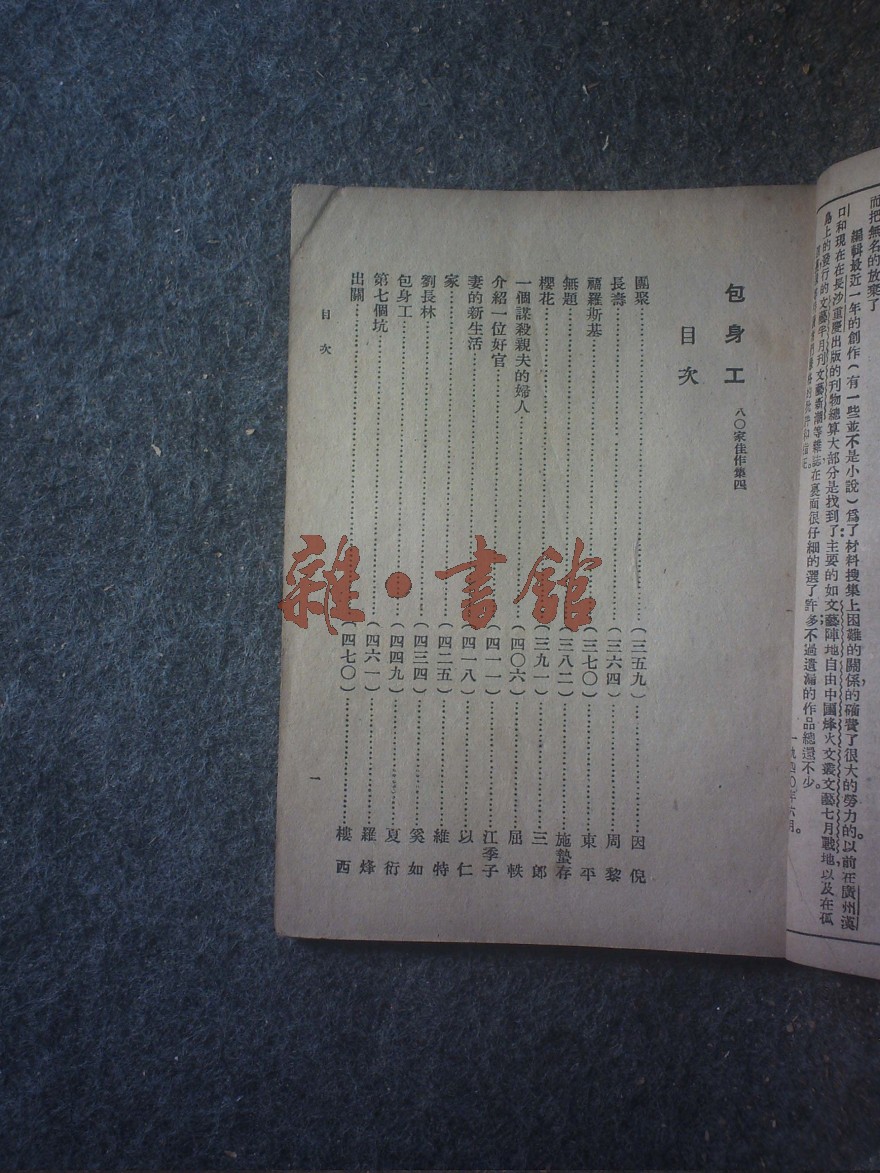 而把無名的放棄了
編輯最近一年的創作(有一些並不是小說)爲了材料搜集上困難的關係的確費了很大的勞力的以前在廣州漢
口和現在在長沙重慶出版的刊物總算大部分是找到了主要的如文藝陣地自由中國烽火文叢文藝七月戰地以及在孤
島上的發行的文藝半月刊文藝新潮等雜誌在裏面很仔細的選了許多不過遺漏的作品總還不少。
一九四〇年六月。
包身工 八〇家佳作集四
目次
團聚(三五九)因倪
長壽(三六四)周黎
福羅斯基(三七〇)東平
無題(三八二)施蟄存
櫻花(三九一)三郎
一個謀殺親夫的婦人(四〇六)屈軼
介紹一位好官(四一一)江季子
妻的新生活(四一八)以仁
家(四二五)維特
劉長林(四三四)奚如
包身工(四四九)夏衍
第七個坑(四六一)羅烽
出關(四七〇)樓西
目次 一
雜·書館